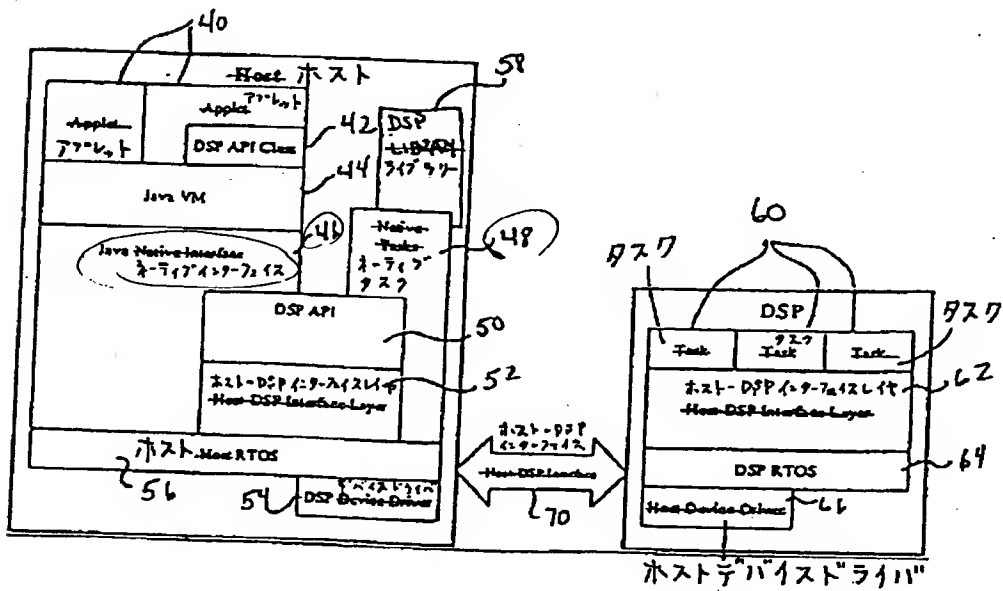 40
58
Host ホスト
Applet
アプレット
Applet アプレット
DSP API Class
42
DSP
LIBRARY
ライブラリー
44
Java VM
Native
Tasks
ネーティブ
タスク
48
46
Java Native Interface
ネーティブインターフェイス
DSP API
50
ホスト-DSPインターフェイスレイヤ
Host-DSP Interface Layer
52
ホスト Host RTOS
56
54
デバイスドライバ
DSP Device Driver
ホスト-DSP
インターフェイス
Host-DSP Interface
70
60
タスク
DSP
タスク
Task
Task
Task
タスク
ホスト-DSPインターフェイスレイヤ
Host-DSP Interface Layer
62
DSP RTOS
64
Host Device Driver
66
ホストデバイスドライバ